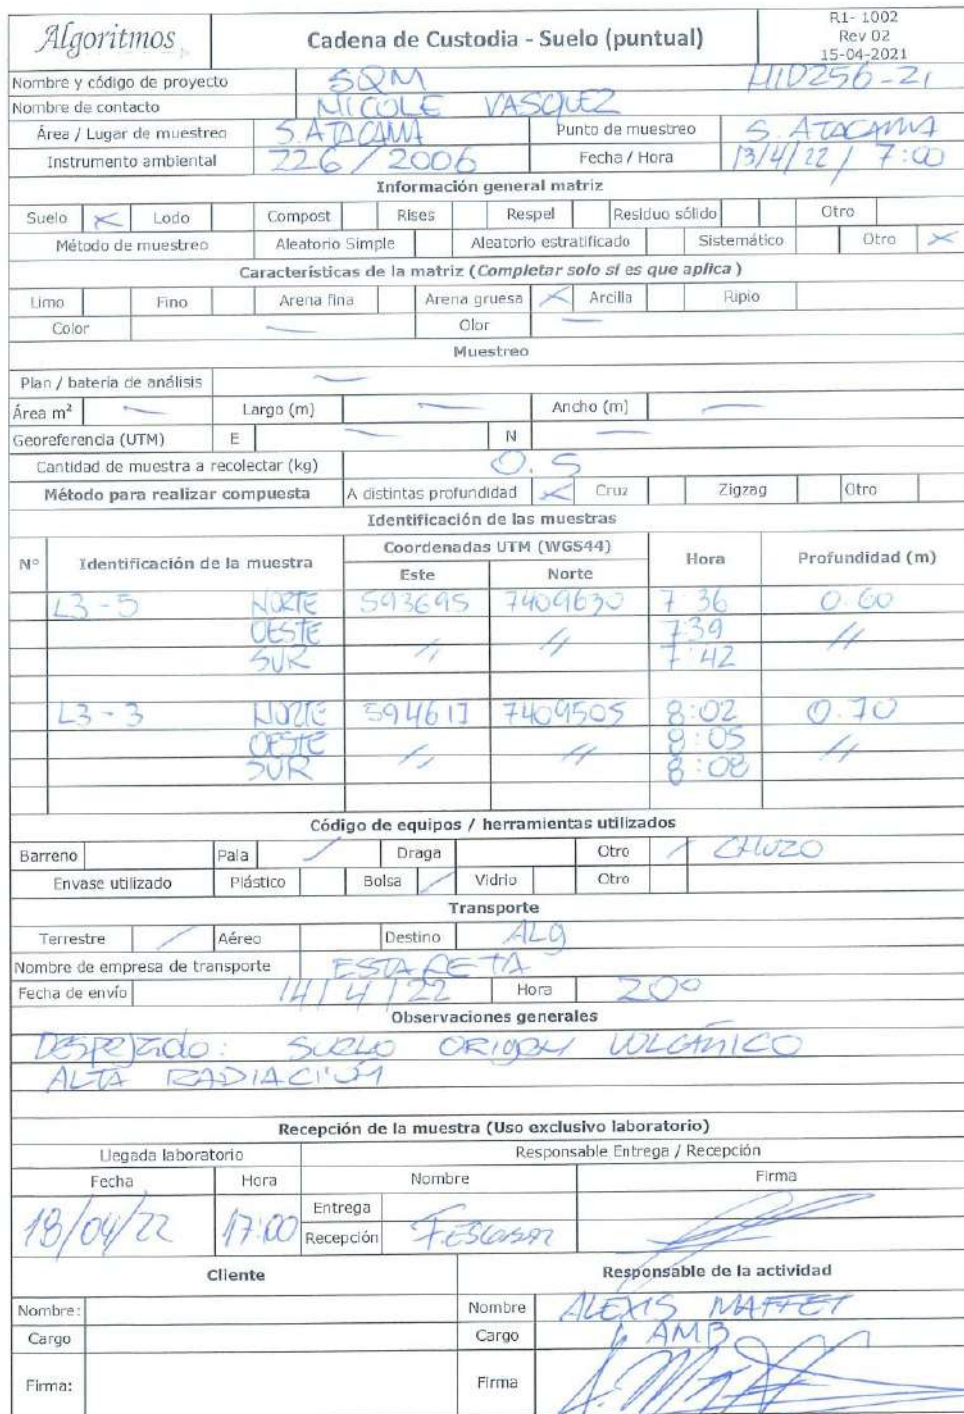 Algoritmos
Cadena de Custodia - Suelo (puntual)
R1- 1002
Rev 02
15-04-2021
Nombre y código de proyecto SQM HID256-21
Nombre de contacto NICOLE VASQUEZ
Área / Lugar de muestreo S. ATACAMA Punto de muestreo S. ATACAMA
Instrumento ambiental 226/2006 Fecha / Hora 13/4/22 / 7:00
Información general matriz
Suelo X Lodo Compost Rises Respel Residuo sólido Otro
Método de muestreo Aleatorio Simple Aleatorio estratificado Sistemático Otro X
Características de la matriz (Completar solo si es que aplica)
Limo Fino Arena fina Arena gruesa X Arcilla Ripio
Color — Olor —
Muestreo
Plan / batería de análisis —
Área m² — Largo (m) — Ancho (m) —
Georeferencia (UTM) E — N —
Cantidad de muestra a recolectar (kg) 0.5
Método para realizar compuesta A distintas profundidad X Cruz Zigzag Otro
Identificación de las muestras
N° Identificación de la muestra Coordenadas UTM (WGS44) Hora Profundidad (m)
Este Norte
L3-5 NORTE 593695 7409630 7 36 0.60
OESTE 7:39
SUR // // 7:42 //
L3-3 NORTE 594617 7409505 8:02 0.70
OESTE 8:05
SUR // // 8:08 //
Código de equipos / herramientas utilizados
Barreno Pala / Draga Otro / CHUZO
Envase utilizado Plástico Bolsa / Vidrio Otro
Transporte
Terrestre / Aéreo Destino ALG
Nombre de empresa de transporte ESTAFETA
Fecha de envío 14/4/22 Hora 20°
Observaciones generales
Despejado: SUELO ORIGEN VOLCÁNICO
ALTA RADIACIÓN
Recepción de la muestra (Uso exclusivo laboratorio)
Llegada laboratorio Responsable Entrega / Recepción
Fecha Hora Nombre Firma
18/04/22 17:00 Entrega
Recepción
Cliente Responsable de la actividad
Nombre: Nombre ALEXIS MAFFET
Cargo Cargo AMB
Firma: Firma